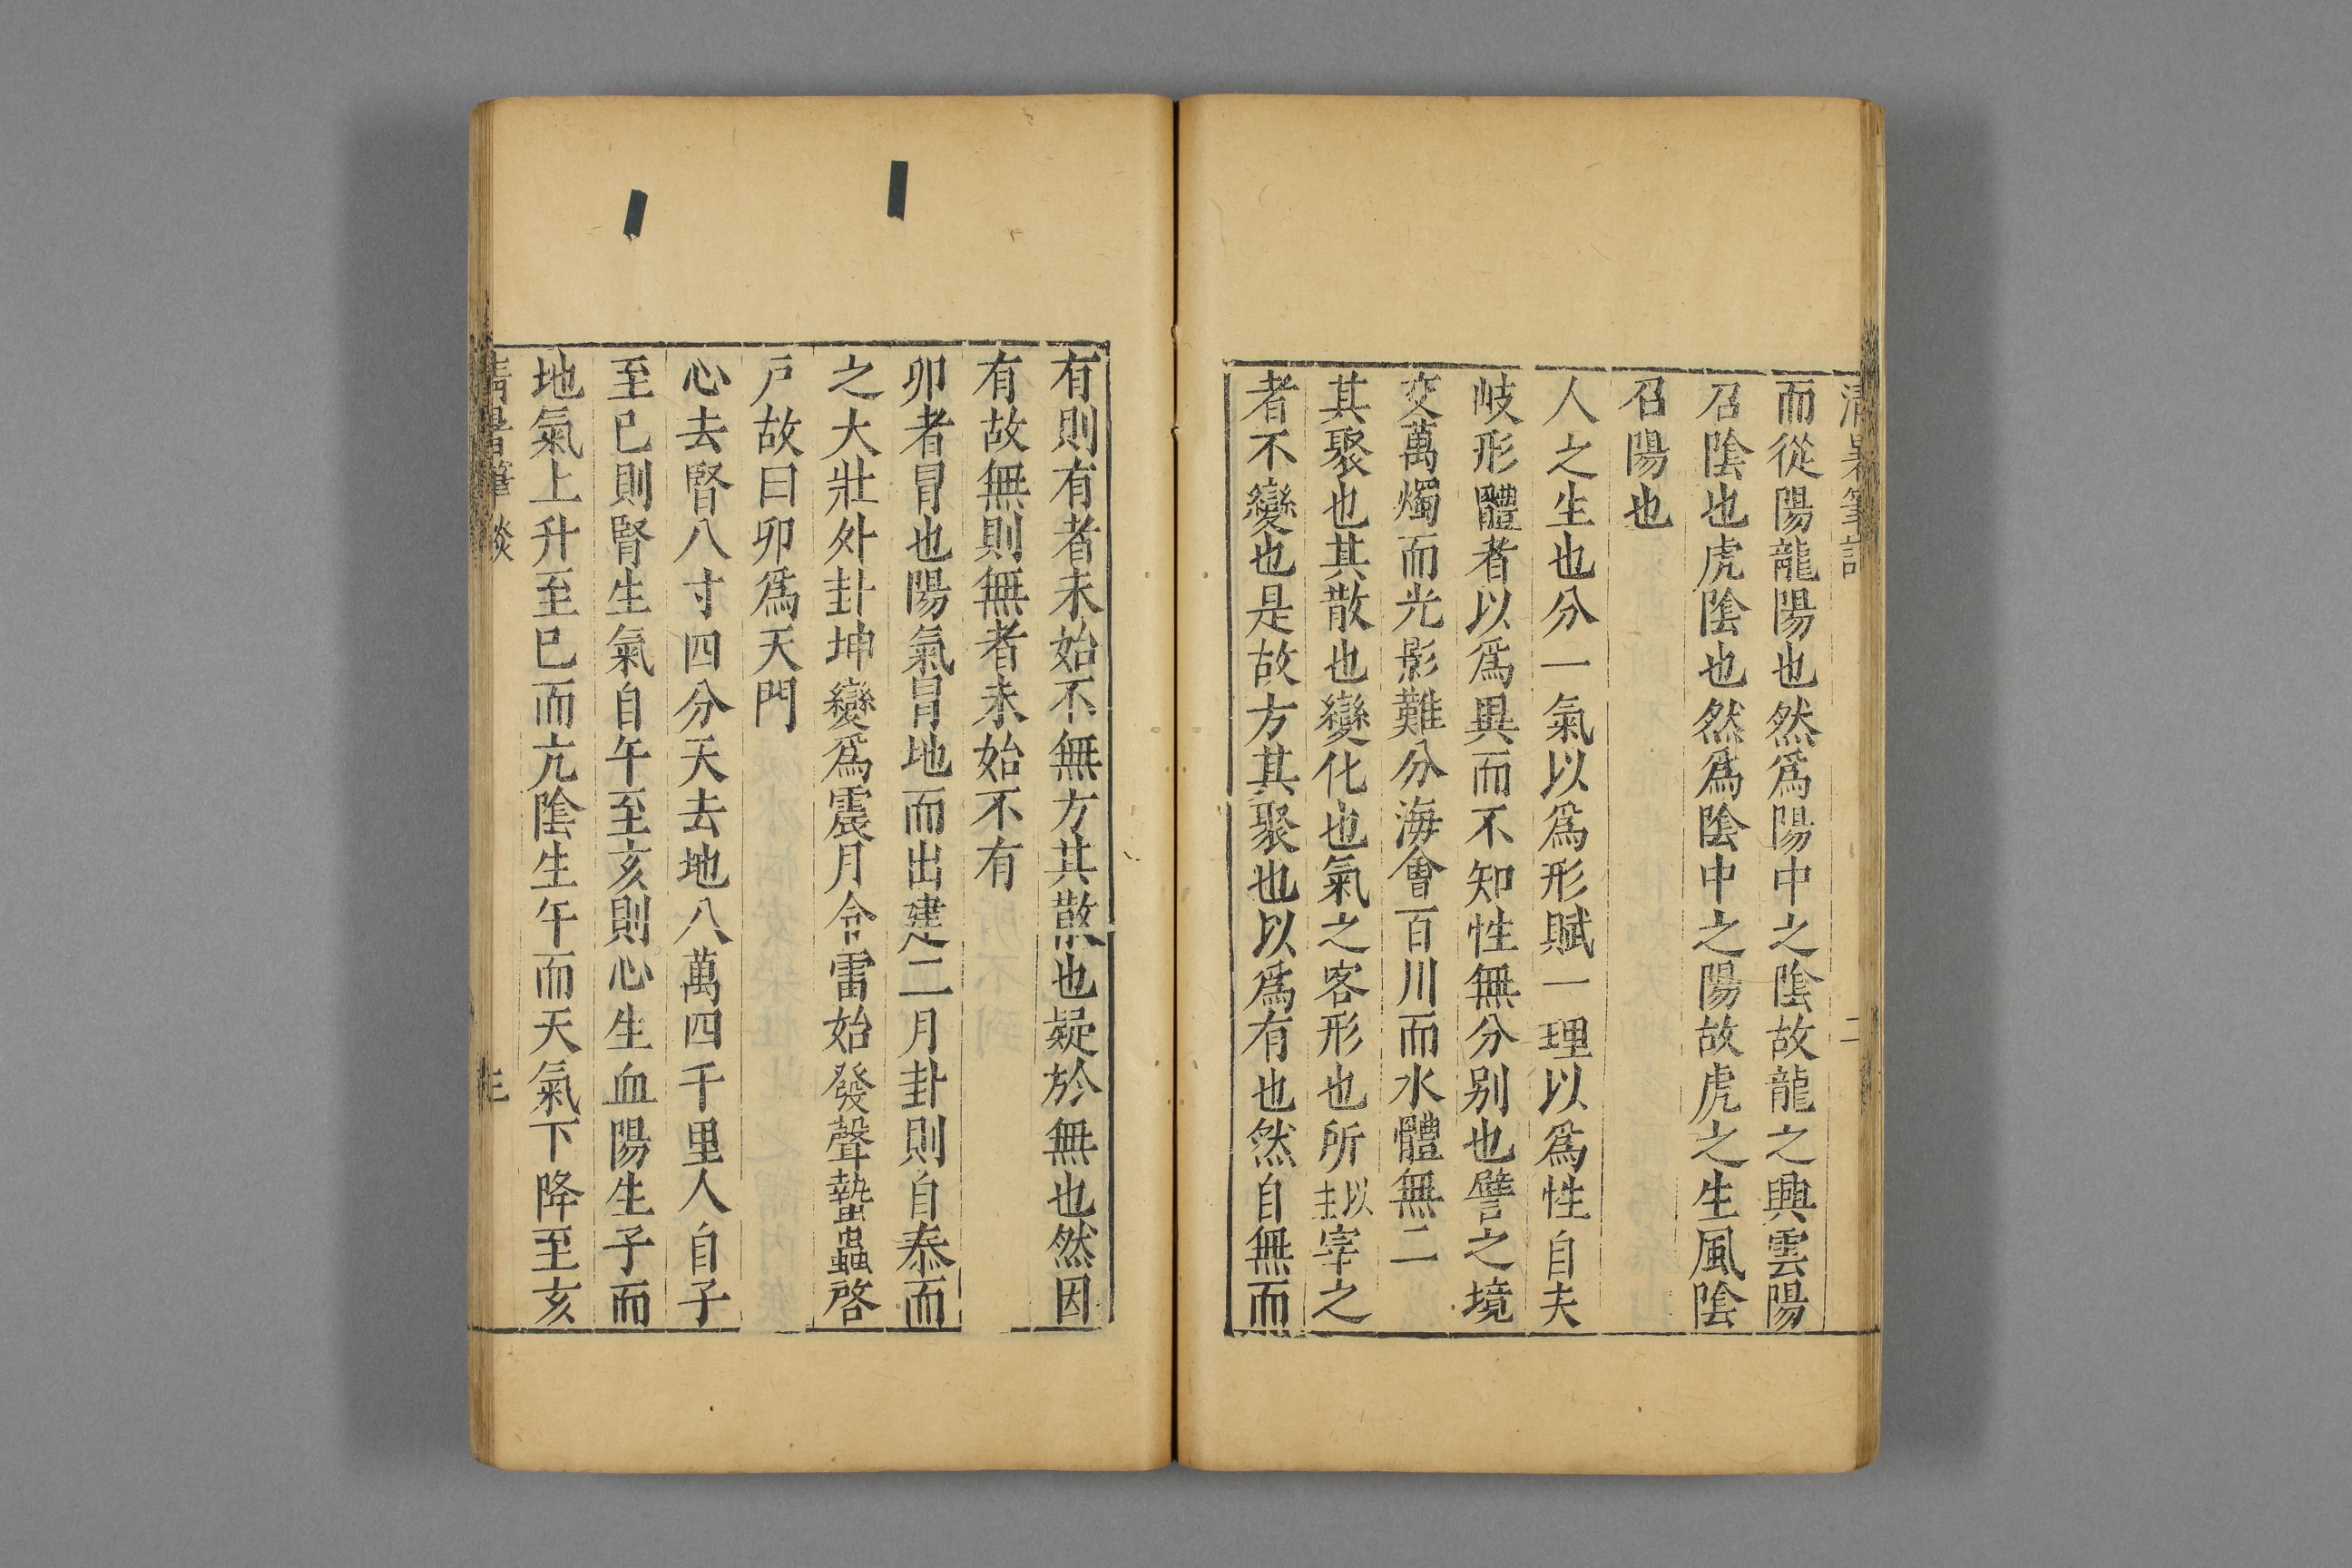 而從陽龍陽也然爲陽中之陰故龍之興雲陽
召陰也虎陰也然爲陰中之陽故虎之生風陰
召陽也
人之生也分一氣以爲形賦一理以爲性自夫
岐形體者以爲異而不知性無分别也譬之境
交萬燭而光影難分海會百川而水體無二
其聚也其散也變化也氣之客形也所以主宰之
者不變也是故方其聚也以爲有也然自無而
有則有者未始不無方其散也疑於無也然因
有故無則無者未始不有
卯者冒也陽氣冒地而出建二月卦則自泰而
之大壯外卦坤變爲震月令雷始發聲蟄蟲啓
戶故曰卯爲天門
心去腎八寸四分天去地八萬四千里人自子
至巳則腎生氣自午至亥則心生血陽生子而
地氣上升至巳而亢陰生午而天氣下降至亥